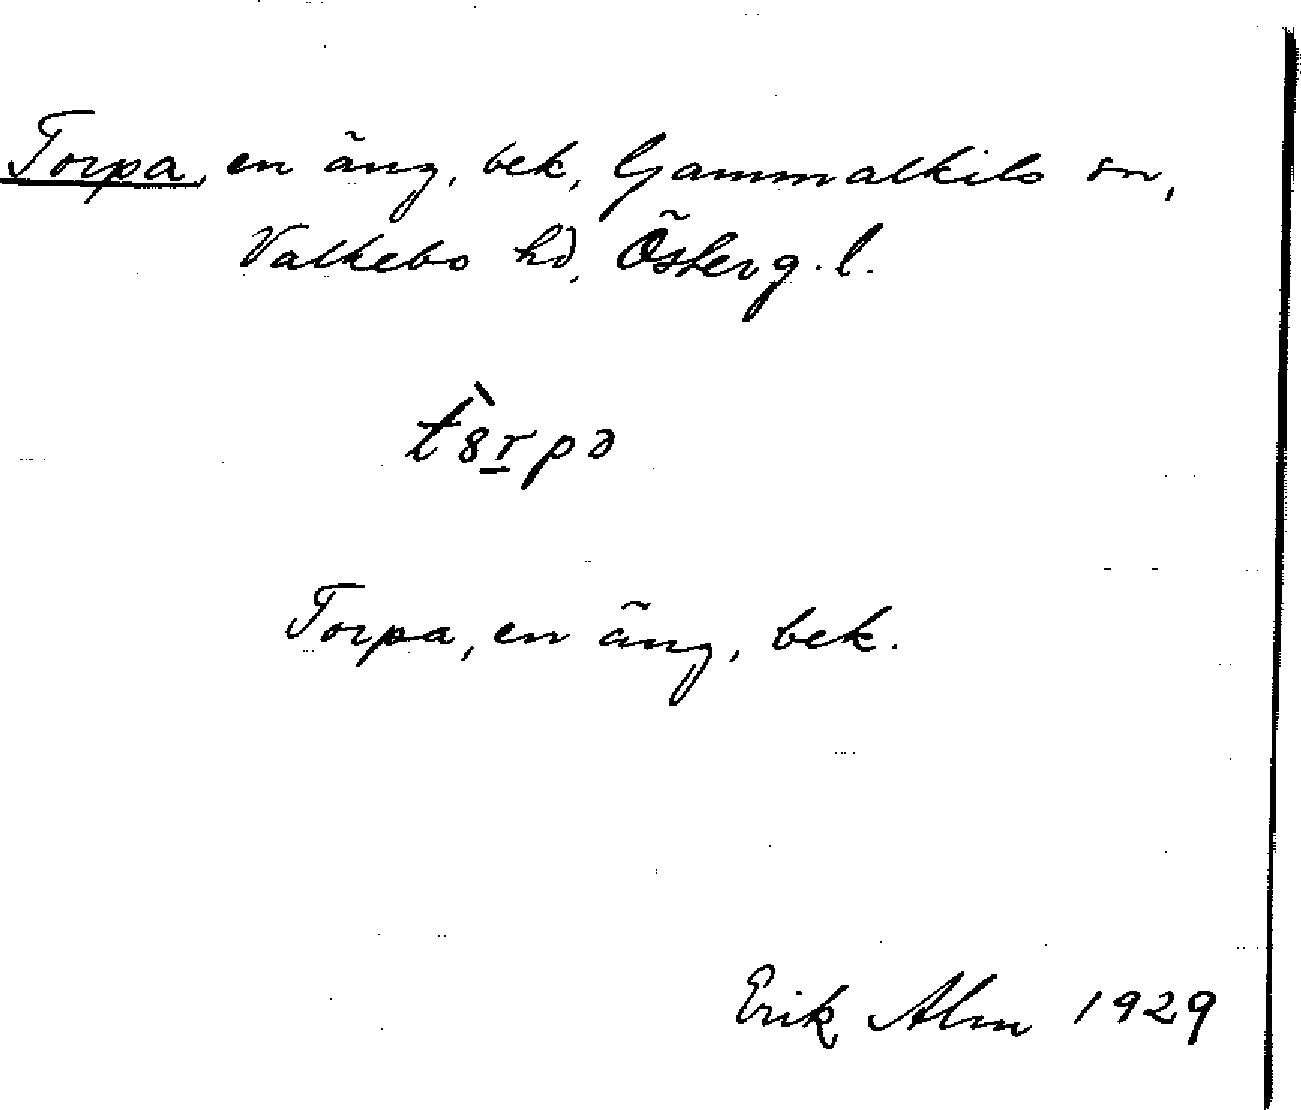 Torpa, en äng, bek, Gammalkils sn,
Valkebo hd, Österg. l.
Torpa, en äng, bek.
Erik Alm 1929